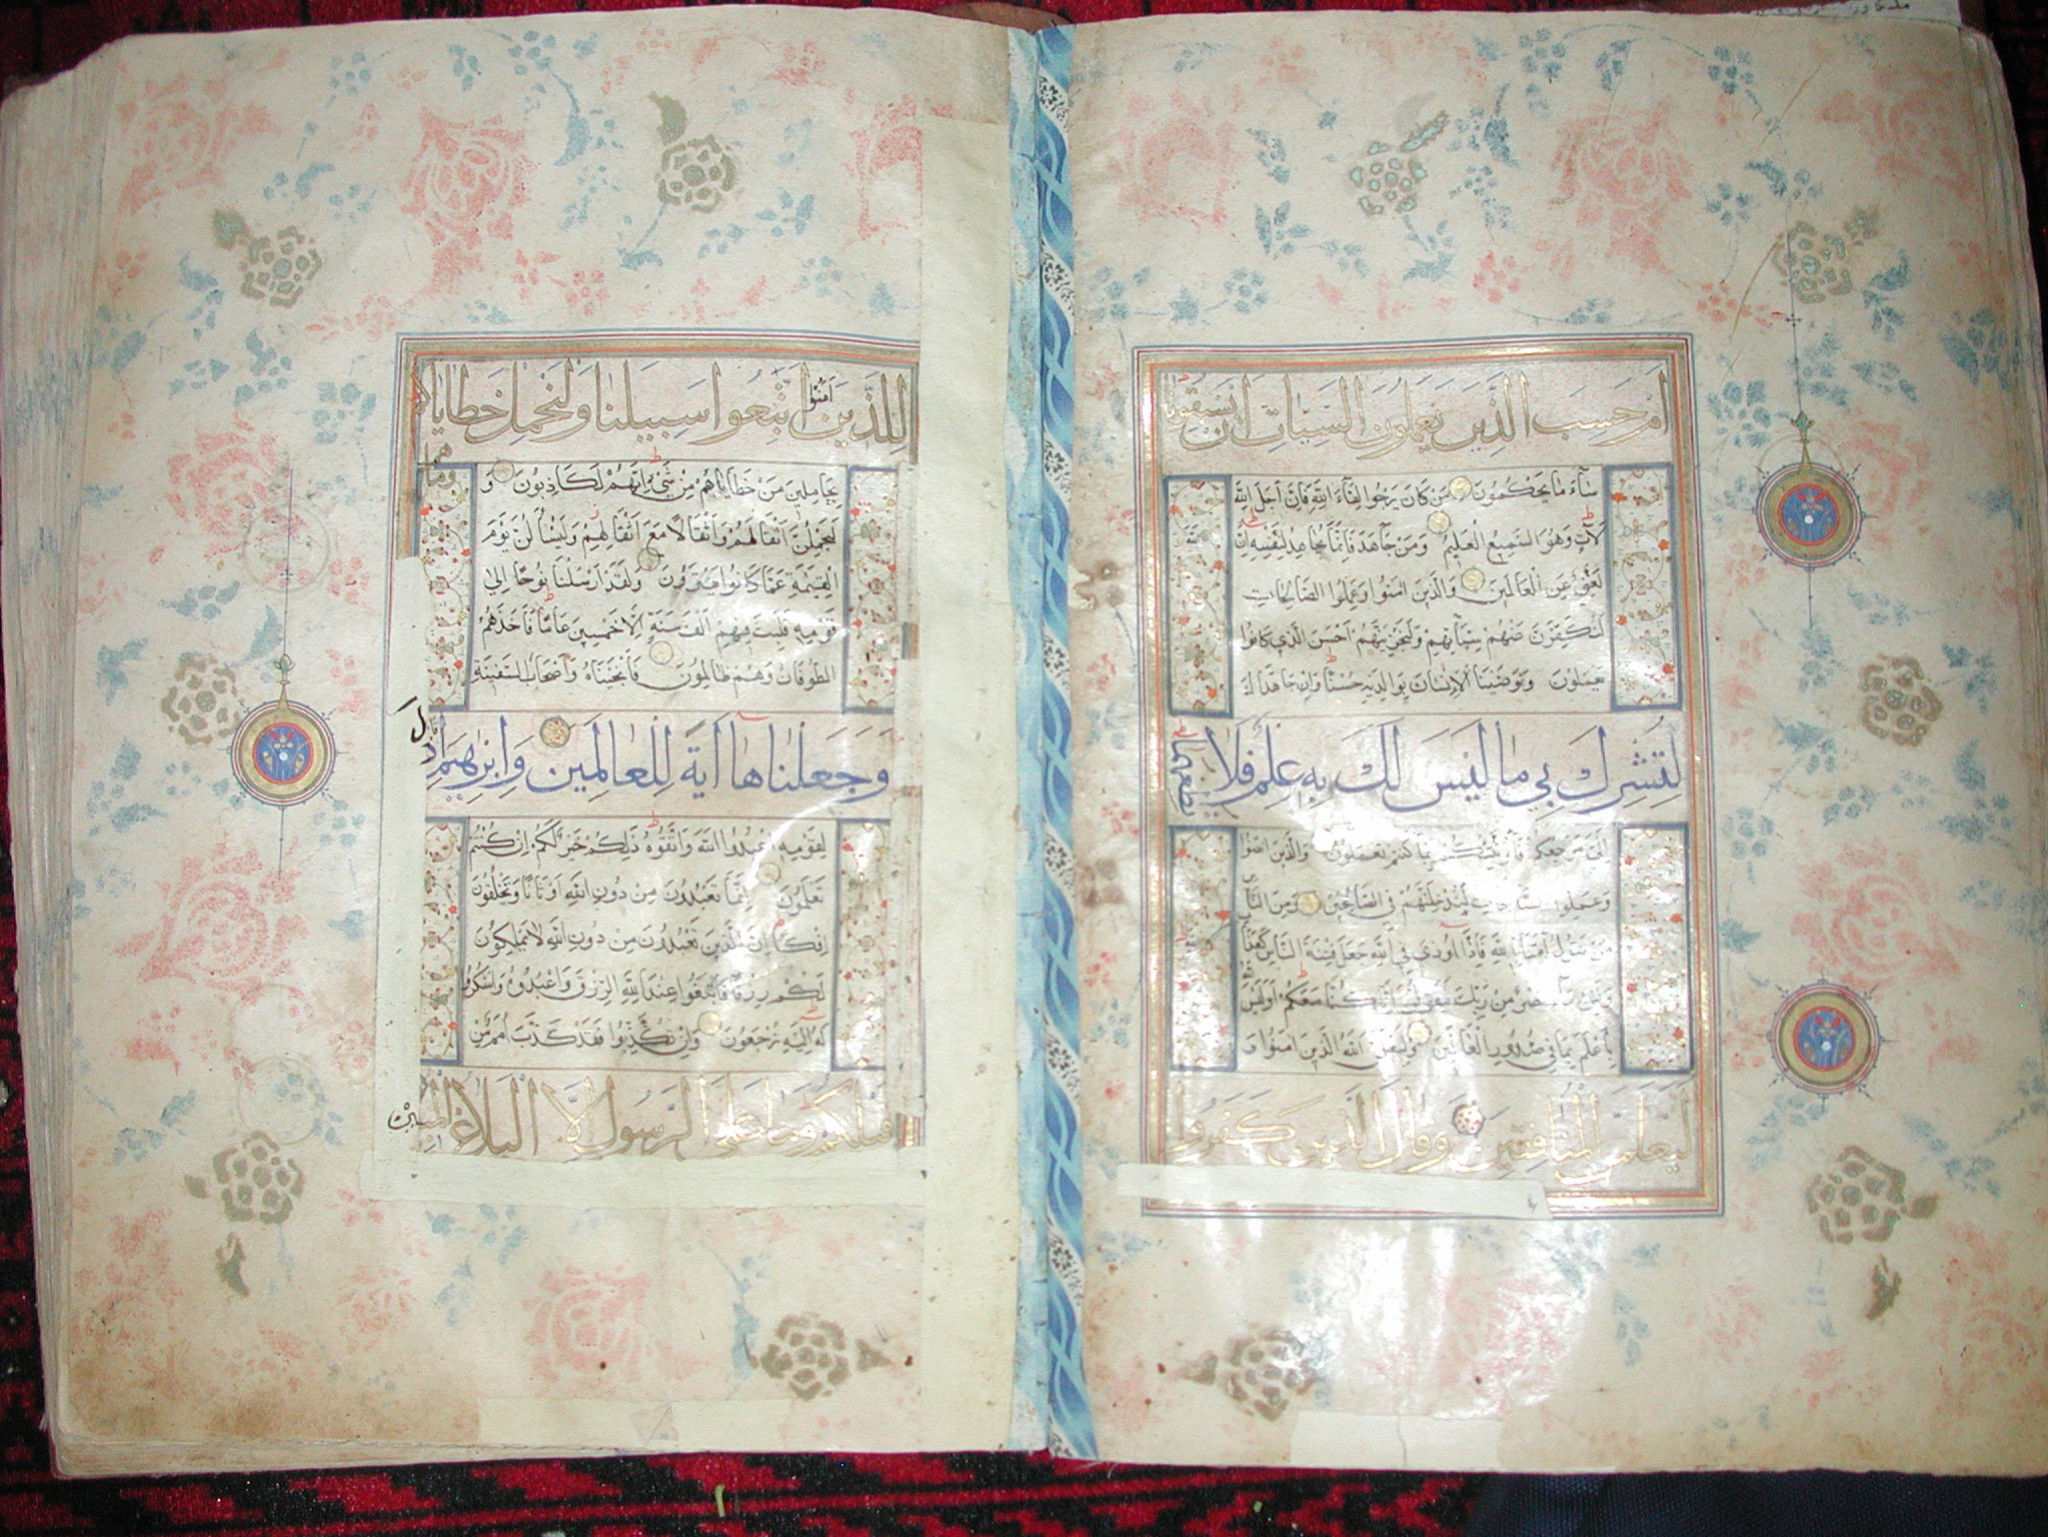 ام حسب الذين يعملون السيات ان يسبقونا
ساء ما يحكمون من كان يرجوا لقاء الله فان اجل الله
لآت وهو السميع العليم ومن جاهد فانما يجاهد لنفسه ان الله
لغني عن العالمين والذين امنوا وعملوا الصالحات
لنكفرن عنهم سيئاتهم ولنجزينهم احسن الذي كانوا
يعملون ووصينا الانسان بوالديه حسنا وان جاهداك
لتشرك بي ما ليس لك به علم فلا تطعهما
الي مرجعكم فأنبئكم بما كنتم تعملون والذين امنوا
وعملوا الصالحات لندخلنهم في الصالحين ومن الناس
من يقول امنا بالله فاذا اوذي في الله جعل فتنة الناس كعذاب
ولئن جآء نصر من ربك ليقولن انا كنا معكم اوليس
بأعلم بما في صدور العالمين وليعلمن الله الذين امنوا و
ليعلمن المنافقين وقال الذين كفروا
للذين امنوا اتبعوا سبيلنا ولنحمل خطاياكم
وما هم
بحاملين من خطاياهم من شيء انهم لكاذبون و
ليحملن اثقالهم واثقالا مع اثقالهم وليسألن يوم
القيمة عما كانوا يفترون ولقد ارسلنا نوحا الي
قومه فلبث فيهم الف سنة الا خمسين عاما فأخذهم
الطوفان وهم ظالمون فأنجيناه وأصحاب السفينة
وجعلناها اية للعالمين وابرهيم اذ قال
لقومه اعبدوا الله واتقوه ذلكم خير لكم ان كنتم
تعلمون انما تعبدون من دون الله اوثانا وتخلقون
افكا ان الذين تعبدون من دون الله لا يملكون
لكم رزقا فابتغوا عند الله الرزق واعبدوه واشكروا
له اليه ترجعون وان تكذبوا فقد كذب امم من
قبلكم وما علي الرسول الا البلاغ المبين